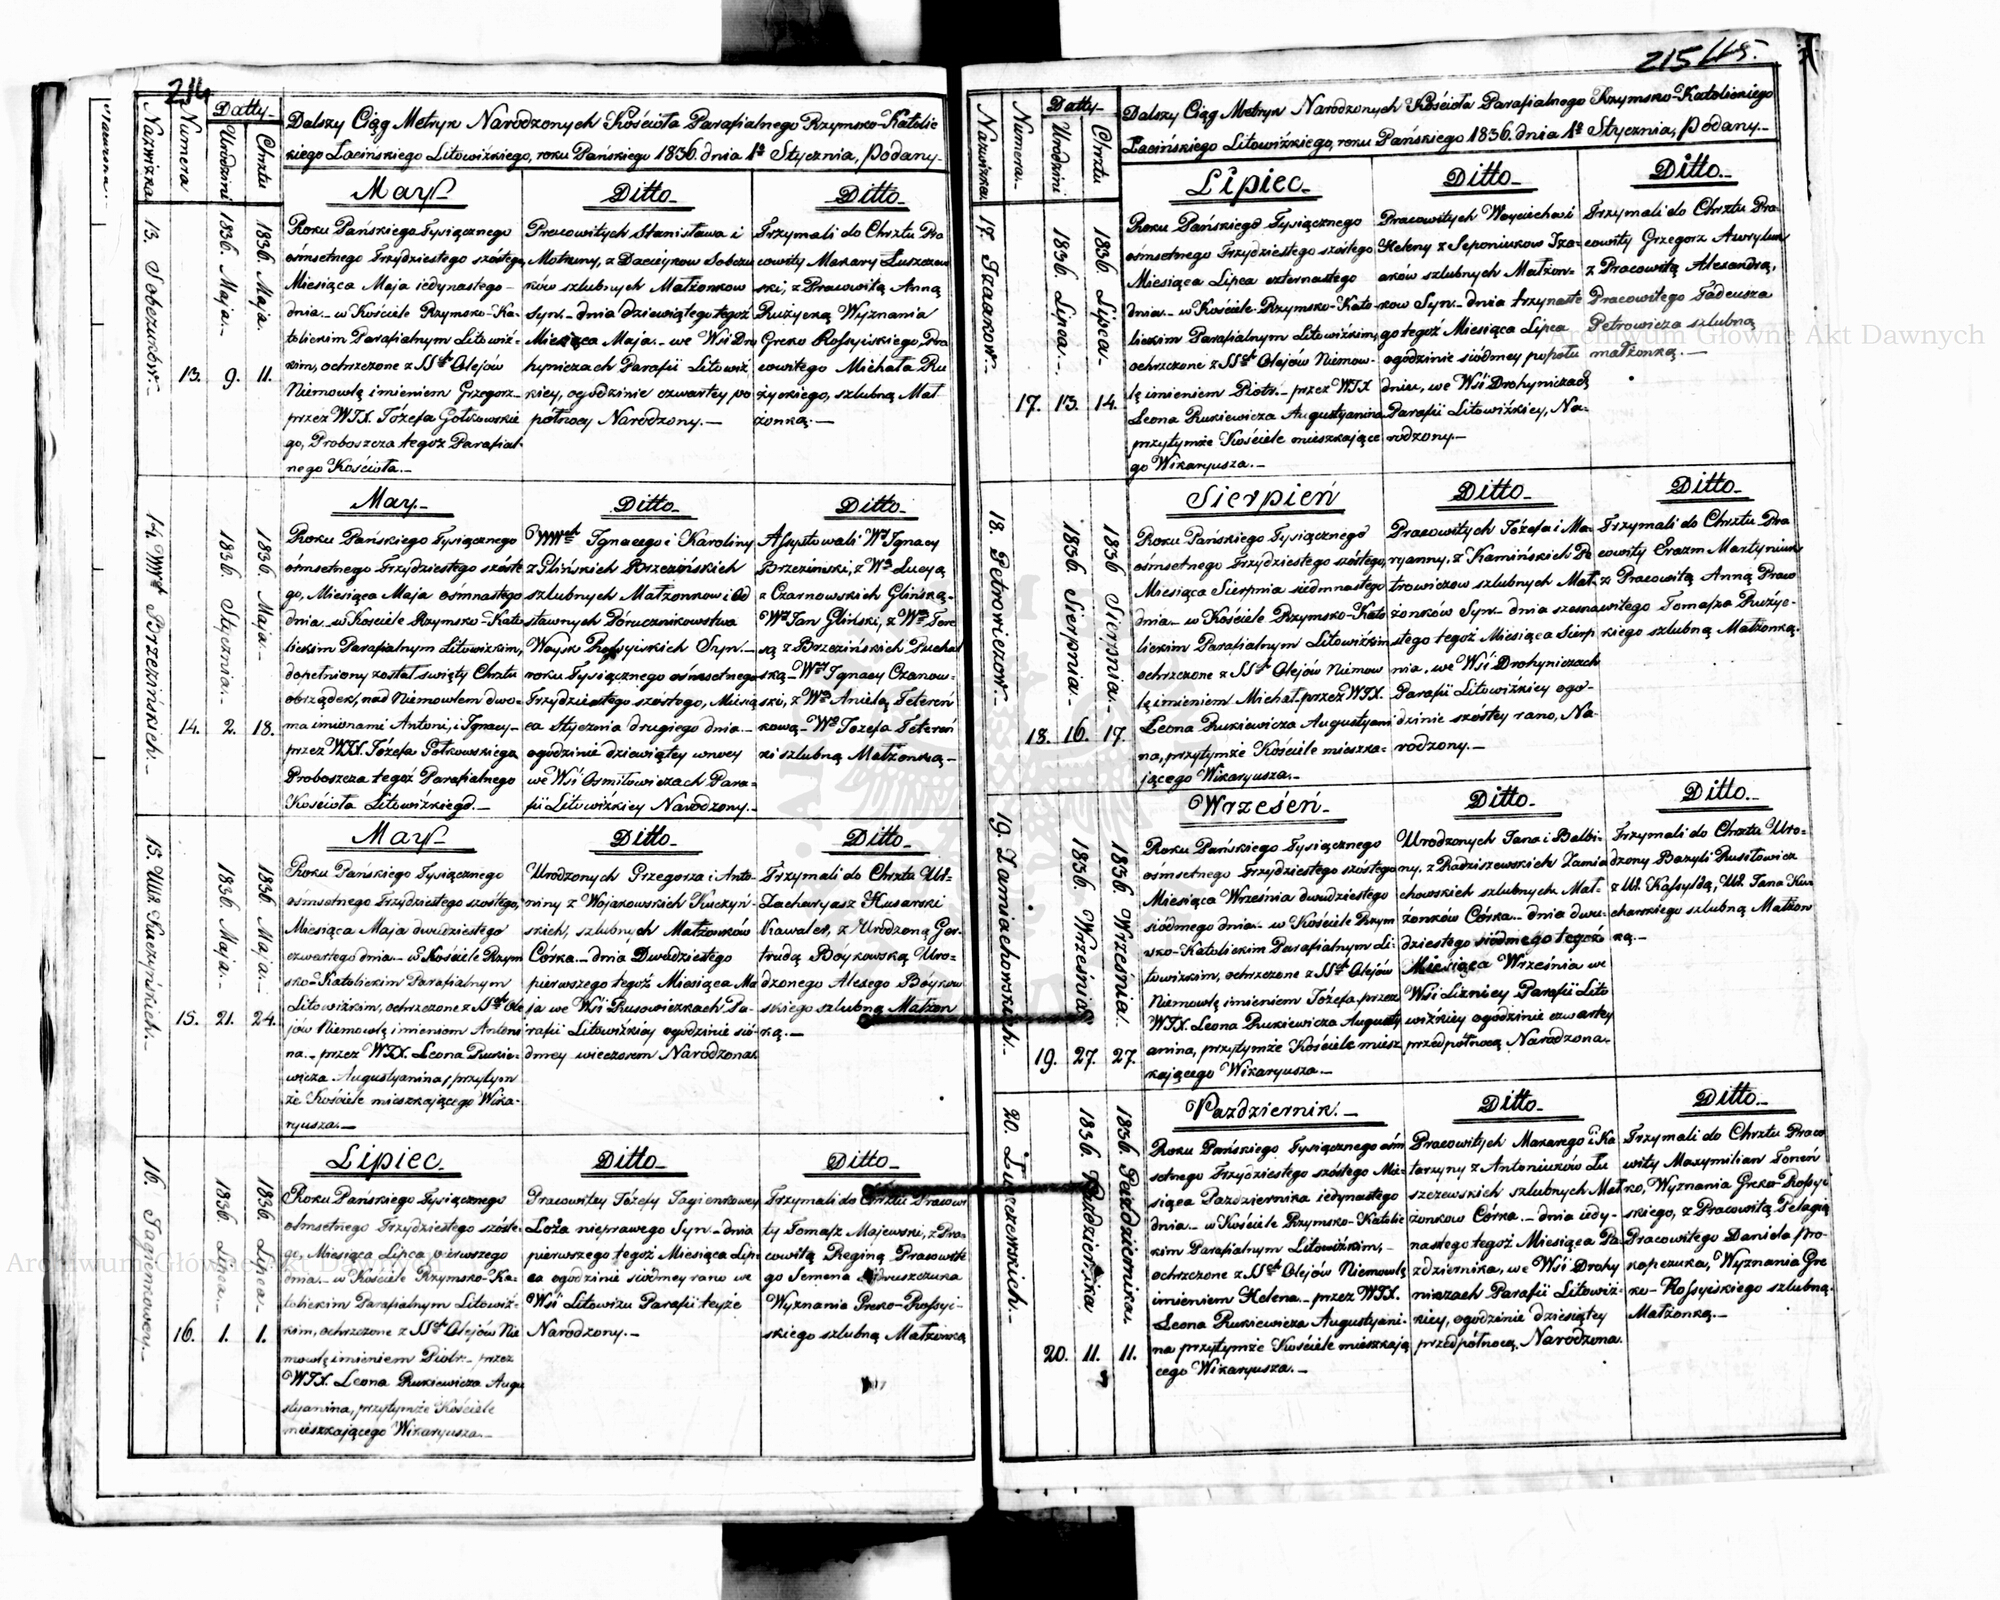 214
Nazwiska
Numera
Datty
Urodzin
Chrztu
Dalszy Ciąg Metryk Narodzonych Kościoła Parafialnego Rzymsko-Katolic
kiego Łacińskiego Litowizkiego, roku Pańskiego 1836. dnia 1go Stycznia, Podany
13. Sobczuków.
13.
1836. Maja. 9.
1836. Maja. 11.
May
Roku Pańskiego Tysiącznego
ośmsetnego Trzydziestego szóstego
Miesiąca Maja iedynastego
dnia w Kościele Rzymsko-Ka-
tolickim Parafialnym Litowiz-
kim, ochrzczone z SStch Olejów
Niemowlę imieniem Grzegorz
przez WJX. Józefa Gołkowskie
go, Proboszcza tegoż Parafial-
nego Kościoła.
Ditto
Pracowitych Stanisława i
Motruny, z Sobczu
ków szlubnych Małżonków
Syn dnia dziewiątego tegoż
Miesiąca Maja we Wsi Dro
hyniczach Parafii Litowiz
kiey, ogodzinie czwartey po
północy Narodzony.
Ditto
Trzymali do Chrztu Pra
cowity Makary Łuszczew
ski, z Pracowitą Anną
Rużycką Wyznania
Greko Rossyiskiego, Pra
cowitego Michała Ru
życkiego, szlubną Mał
żonką.
14. Brzezińskich.
14.
1836. Stycznia. 2.
1836. Maja. 18.
May
Roku Pańskiego Tysiącznego
ośmsetnego Trzydziestego szóste
go, Miesiąca Maja ośmnastego
dnia w Kościele Rzymsko-Kato
lickim Parafialnym Litowizkim,
dopełniony został święty Chrztu
obrządek, nad Niemowlem dwo-
ma imionami Antoni, i Ignacy
przez WJX. Józefa Gołkowskiego
Proboszcza tegoż Parafialnego
Kościoła Litowizkiego.
Ditto
Ignacego i Karoliny
z Glińskich Brzezińskich
szlubnych Małżonków i Od
stawnych Porucznikowstwa
Woysk Rossyiskich Syn.
roku Tysiącznego ośmsetnego
Trzydziestego szóstego, Miesią
ca Stycznia drugiego dnia
ogodzinie dziewiątey wnocy
we Wsi Osmiłowiczach Para-
fii Litowizkiey Narodzony.
Ditto
Assystowali Wny Ignacy
Brzeziński, z Wną Łucyą
z Czarnowskich Glińską.
Wny Jan Gliński, z Wną Tere
są z Brzezińskich Puchal
ską. Wny Ignacy Czarnow-
ski, z Wną Anielą Tetereń
kową Wgo Jozefa Tetereń
ki szlubną Małżonką
15. Kuczyńskich.
15.
1836. Maja. 21.
1836. Maja. 24.
May
Roku Pańskiego Tysiącznego
ośmsetnego Trzydziestego szóstego,
Miesiąca Maja dwudziestego
czwartego dnia w Kościele Rzym
sko-Katolickim Parafialnym
Litowizkim, ochrzczone z SStch Ole
jów Niemowlę imieniem Antoni
na przez WJX. Leona Rukie-
wicza Augustyanina, przytym
że Kościele mieszkającego Wika-
ryusza.
Ditto
Urodzonych Grzegorza i Anto-
niny z Wojakowskich Kuczyń-
skich, szlubnych Małżonków
Córka dnia Dwudziestego
pierwszego tegoż Miesiąca Ma
ja we Wsi Rusowiczkach Pa-
rafii Litowizkiey ogodzinie sió-
dmey wieczorem Narodzona.
Ditto
Trzymali do Chrztu Ur.
Zacharyasz Husarski
Kawaler, z Urodzoną Ger-
trudą Bóykowską Uro-
dzonego Alexego Bóykow
skiego szlubną Małżon
ką.
16. Jagienkowey.
16.
1836. Lipca. 1.
1836. Lipca. 1.
Lipiec.
Roku Pańskiego Tysiącznego
ośmsetnego Trzydziestego szóste-
go, Miesiąca Lipca pierwszego
dnia w Kościele Rzymsko-Ka-
tolickim Parafialnym Litowiz-
kim, ochrzczone z SStch Olejów Nie
mowlę imieniem Piotr przez
WJX. Leona Rukiewicza Augu
styanina, przytymże Kościele
mieszkającego Wikaryusza.
Ditto
Pracowitey Józefy Jagienkowey
Łoża nieprawego Syn dnia
pierwszego tegoż Miesiąca Lip
ca ogodzinie siódmey rano we
Wsi Litowizu Parafii teyże
Narodzony.
Ditto
Trzymali do Chrztu Pracowi
ty Tomasz Majewski, z Pra-
cowitą Reginą Pracowite
go Semena
Wyznania Greko-Rossyi-
skiego szlubną Małżonką
215
Nazwiska
Numera
Datty
Urodzin
Chrztu
Dalszy Ciąg Metryk Narodzonych Kościoła Parafialnego Rzymsko-Katolickiego
Łacińskiego Litowizkiego, roku Pańskiego 1836. dnia 1go Stycznia, Podany
17. Izaaków.
17.
1836. Lipca. 13.
1836. Lipca. 14.
Lipiec.
Roku Pańskiego Tysiącznego
ośmsetnego Trzydziestego szóstego
Miesiąca Lipca czternastego
dnia w Kościele Rzymsko-Kato-
lickim Parafialnym Litowizkim,
ochrzczone z SStch Olejów Niemow-
lę imieniem Piotr przez WJX
Leona Rukiewicza Augustyanina
przytymże Kościele mieszkające
go Wikaryusza.
Ditto
Pracowitych Woyciecha i
Heleny z Seponiuków Iza-
aków szlubnych Małżon-
kow Syn dnia trzynaste
go tegoż Miesiąca Lipca
ogodzinie siódmey popołu
dniu, we Wsi Drohyniczach
Parafii Litowizkiey, Na-
rodzony.
Ditto.
Trzymali do Chrztu Pra-
cowity Grzegorz Awryluk
z Pracowitą Alexandrą,
Pracowitego Tadeusza
Petrowicza szlubną
małżonką.
18. Petrowiczow.
18.
1836 Sierpnia. 16.
1836 Sierpnia. 17.
Sierpień
Roku Pańskiego Tysiącznego
ośmsetnego Trzydziestego szóstego,
Miesiąca Sierpnia siedmnastego
dnia w Kościele Rzymsko-Kato
lickim Parafialnym Litowizkim
ochrzczone z SStch Olejów Niemow
lę imieniem Michał przez WJX.
Leona Rukiewicza Augustyani
na, przytymże Kościele mieszka-
jącego Wikaryusza.
Ditto
Pracowitych Józefa i Ma-
ryanny, z Kamińskich Pe
trowiczow szlubnych Mał-
żonków Syn dnia szesna
stego tegoż Miesiąca Sierp
nia we Wsi Drohyniczach
Parafii Litowizkiey ogo-
dzinie szóstey rano, Na-
rodzony.
Ditto
Trzymali do Chrztu Pra
cowity Erazm Martyniuk
z Pracowitą Anną Praco
witego Tomasza Rużyc-
kiego szlubną Małżonką.
19. Zamiachowskich.
19.
1836. Września 27.
1836 Września. 27.
Wrzesień
Roku Pańskiego Tysiącznego
ośmsetnego Trzydziestego szóstego
Miesiąca Września dwudziestego
siódmego dnia w Kościele Rzym
sko-Katolickim Parafialnym Li-
towizkim, ochrzczone z SStch Olejów
Niemowlę imieniem Józefa przez
WJX. Leona Rukiewicza Augusty
anina, przytymże Kościele miesz
kającego Wikaryusza.
Ditto
Urodzonych Jana i Balbi-
ny, z Radziszewskich Zamia
chowskich szlubnych Mał-
żonków Córka dnia dwu-
dziestego siódmego tegoż
Miesiąca Września we
Wsi Lizniey Parafii Lito
wizkiey ogodzinie czwartey
przed północą Narodzona.
Ditto.
Trzymali do Chrztu Uro-
dzony Bazyli Rusiłowicz
z Ur. Kassyldą, Ur. Jana Ku
charskiego szlubną Małżon
ką.
20. Łuszczewskich.
20.
1836. Października 11.
1836. Października. 11.
Pazdziernik.
Roku Pańskiego Tysiącznego ośm
setnego Trzydziestego szóstego Mie-
siąca Pazdziernika iedynastego
dnia w Kościele Rzymsko-Katolic
kim Parafialnym Litowizkim,
ochrzczone z SStch Olejów Niemowlę
imieniem Helena przez WJX.
Leona Rukiewicza Augustyani-
na przytymże Kościele mieszkają
cego Wikaryusza.
Ditto
Pracowitych Makarego i Ka
tarzyny z Antoniuków Łu
szczewskich szlubnych Mał
żonkow Córka dnia iedy-
nastego tegoż Miesiąca Pa
zdziernika, we Wsi Drohy
niczach Parafii Litowiz-
kiey, ogodzinie dziesiątey
przedpółnocą, Narodzona.
Ditto
Trzymali do Chrztu Praco
wity Maxymilian Foneń
ko, Wyznania Greko-Rossyi
skiego, z Pracowitą Pelagią
Pracowitego Daniela Pro-
kopczuka, Wyznania Gre
ko-Rossyiskiego szlubną
Małżonką.
Archiwum Główne Akt Dawnych
Archiwum Główne Akt Dawnych